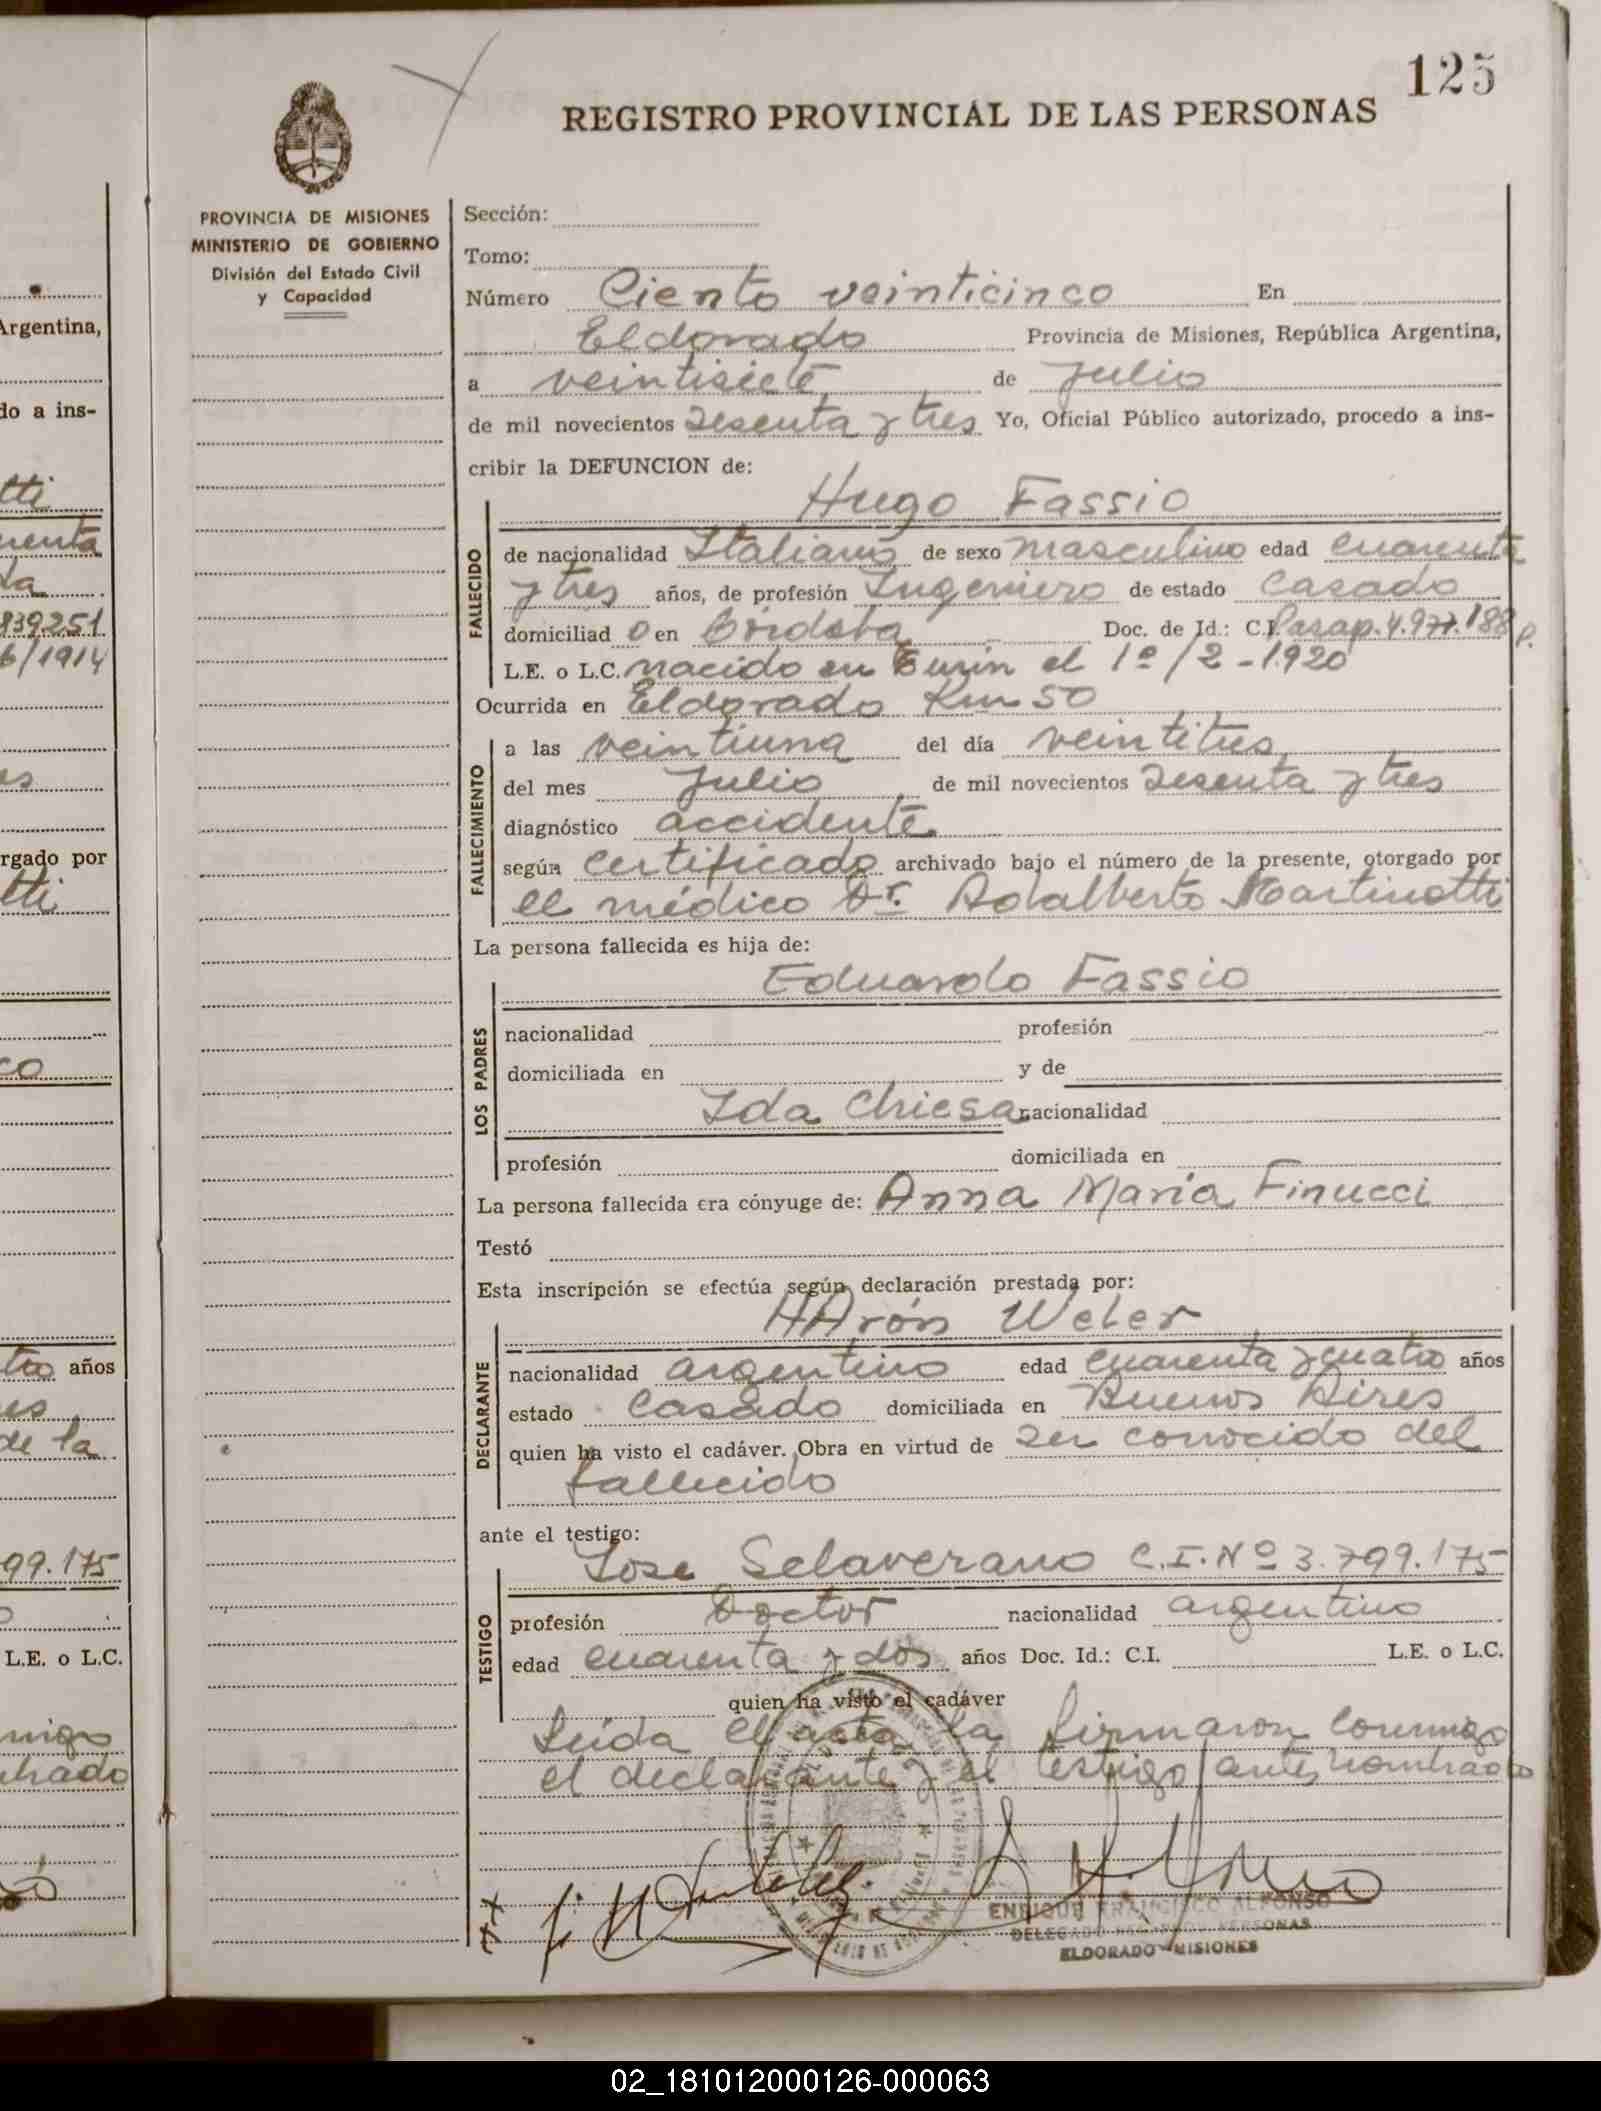 125
REGISTRO PROVINCIAL DE LAS PERSONAS
PROVINCIA DE MISIONES
MINISTERIO DE GOBIERNO
División del Estado Civil
y Capacidad
Sección:
Tomo:
Número Ciento veinticinco En
Eldorado Provincia de Misiones, República Argentina,
a veintisiete de Julio
de mil novecientos sesenta y tres Yo, Oficial Público autorizado, procedo a ins-
cribir la DEFUNCION de:
Hugo Fassio
FALLECIDO
de nacionalidad Italiano de sexo masculino edad cuarenta
y tres años, de profesión Ingeniero de estado casado
domiciliad o en Córdoba Doc. de Id.: C.I. Pasap. 4.977.188 P.
L.E. o L.C. nacido en Turin el 1º/2-1920
Ocurrida en Eldorado Km 50
FALLECIMIENTO
a las veintiuna del día veintitres
del mes Julio de mil novecientos sesenta y tres
diagnóstico accidente
según certificado archivado bajo el número de la presente, otorgado por
el médico Dr. Adalberto Martinotti
La persona fallecida es hija de:
Eduardo Fassio
LOS PADRES
nacionalidad profesión
domiciliada en y de
Ida Chiesa nacionalidad
profesión domiciliada en
La persona fallecida era cónyuge de: Anna María Finucci
Testó
Esta inscripción se efectúa según declaración prestada por:
HArón Weler
DECLARANTE
nacionalidad argentino edad cuarenta y cuatro años
estado casado domiciliada en Buenos Aires
quien ha visto el cadáver. Obra en virtud de ser conocido del
fallecido
ante el testigo:
Jose Selaverano C.I. Nº 3.799.175
TESTIGO
profesión Doctor nacionalidad argentino
edad cuarenta y dos años Doc. Id.: C.I. L.E. o L.C.
quien ha visto el cadáver
Leida el acta la firmaron conmigo
el declarante y el testigo antes nombrado
ENRIQUE FRANCISCO ALFONSO
DELEGADO PERSONAS
ELDORADO - MISIONES
Argentina,
do a ins-
tti
renta
da
839.251
6/1914
es
rgado por
tti
co
tro años
es
de la
99.175
L.E. o L.C.
migo
brado
02_181012000126-000063